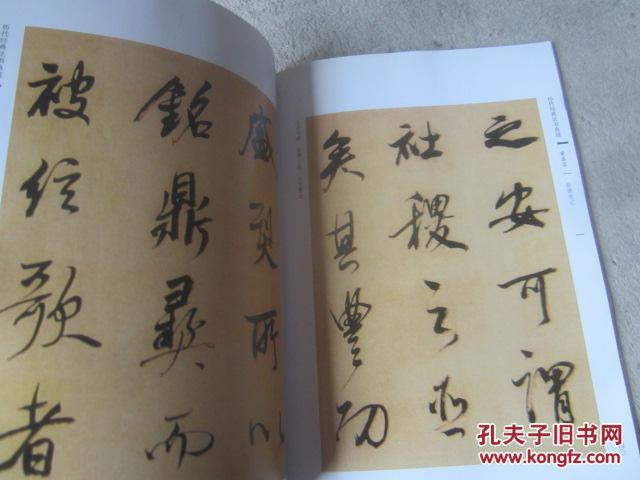 之安可謂
社稷之臣
矣其豐功
盛烈所以
銘鼎彝而
被絃歌者
董其昌
孔夫子旧书网
www.kongfz.com